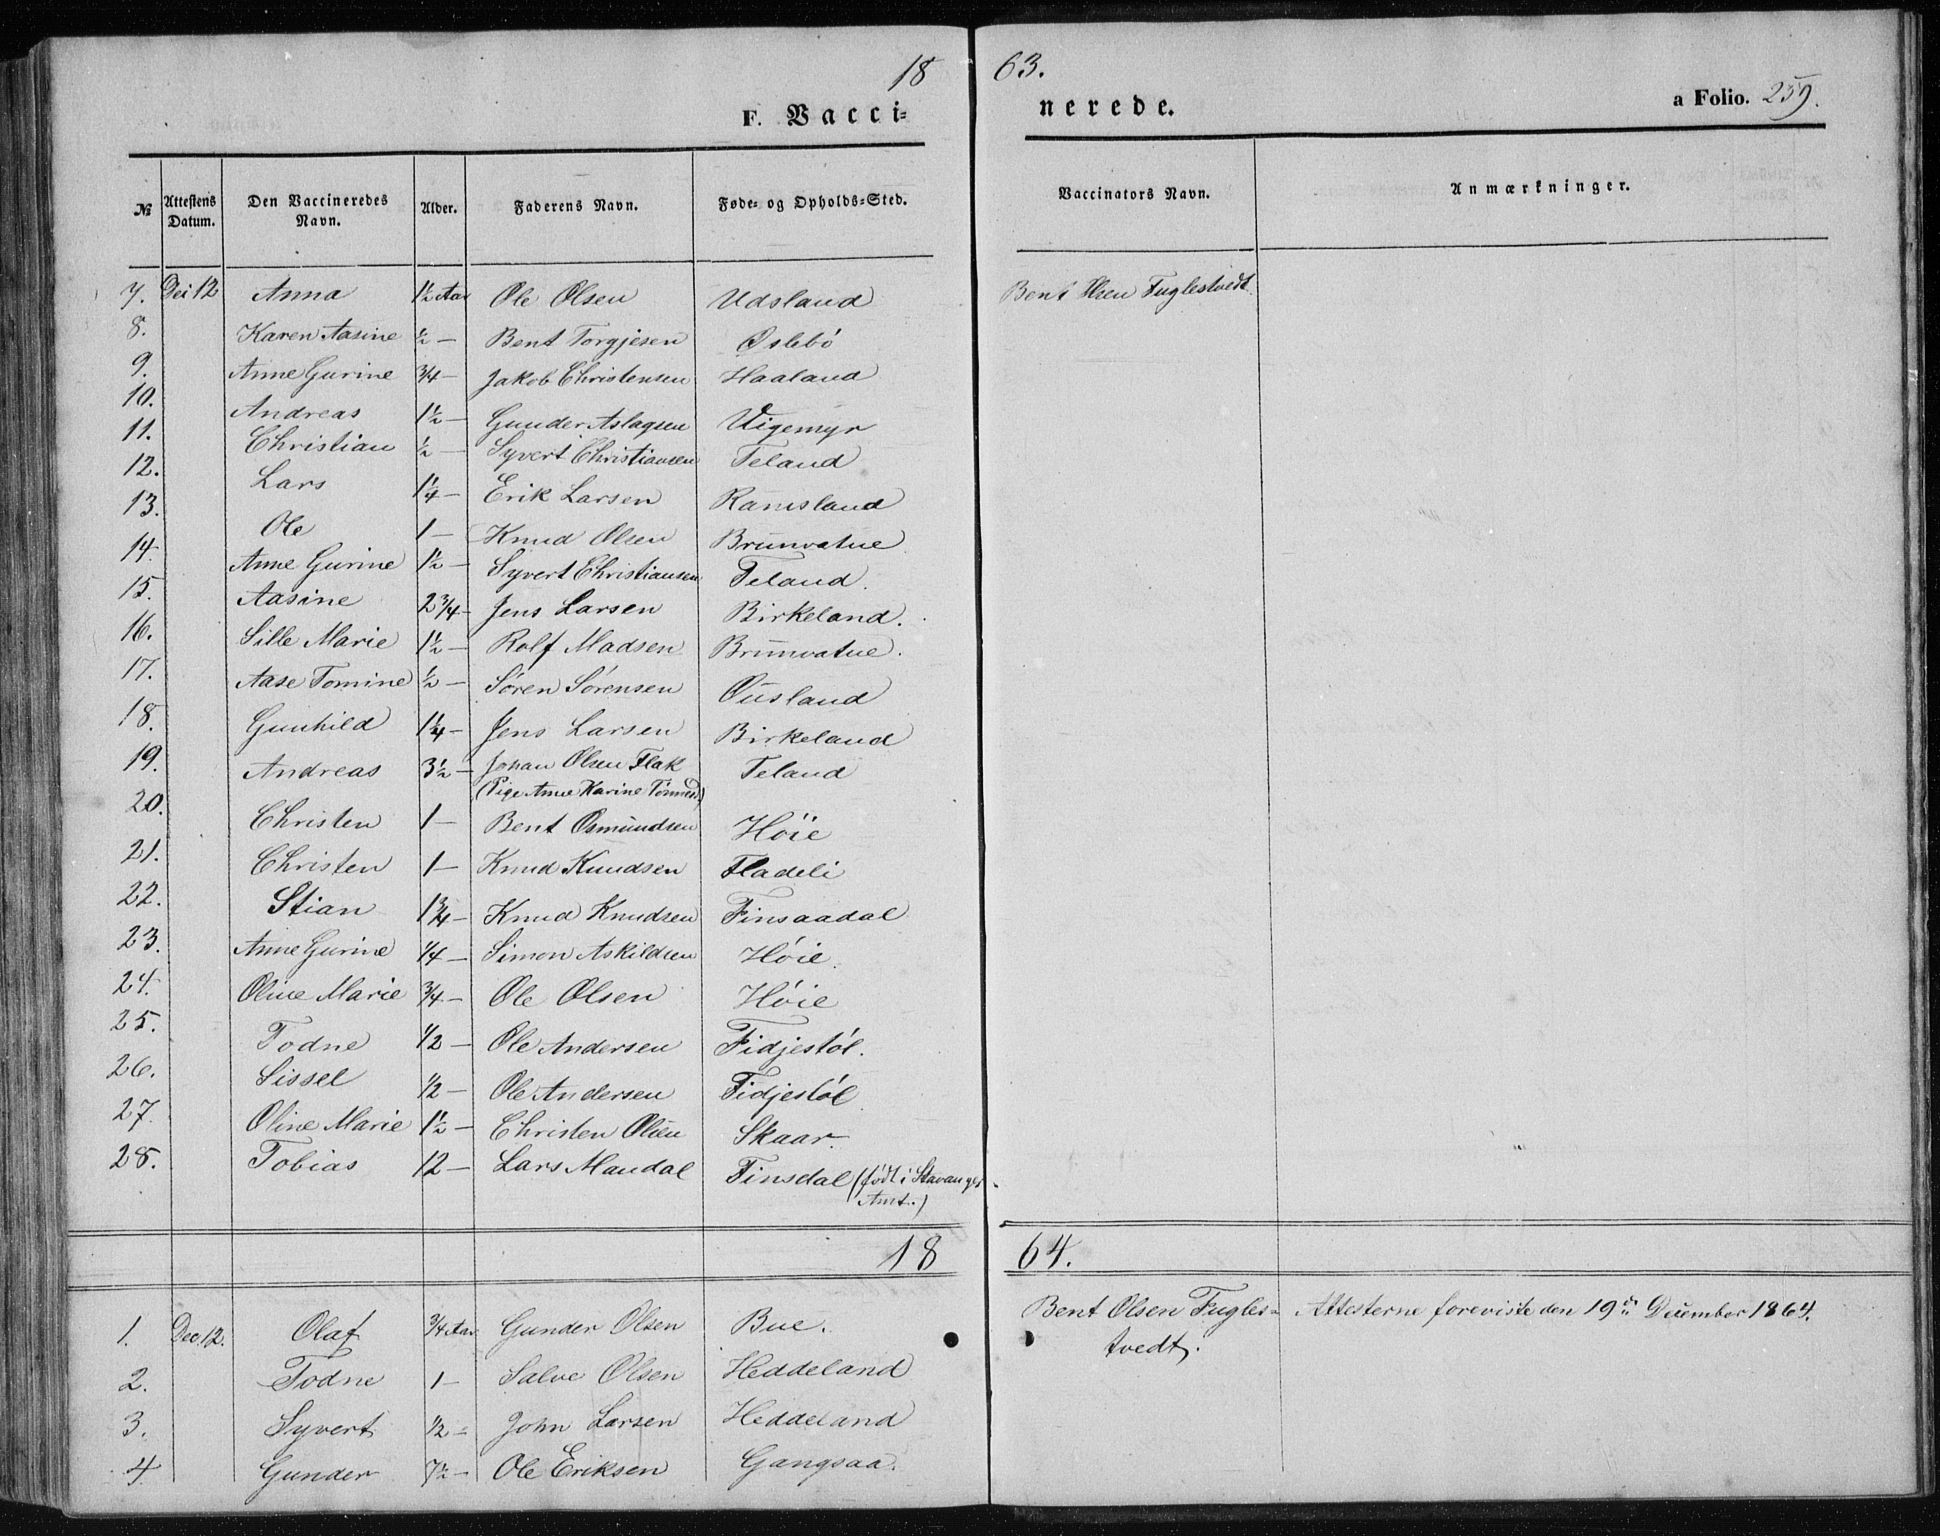 18 63.
F. Vaccinerede. a Folio. 259.
№ Attestens Datum. Den Vaccineredes Navn. Alder. Faderens Navn. Føde- og Opholds-Sted. Vaccinators Navn. Anmærkninger.
7. Dei 12 Anna 1½ Aar Ole Olsen Udsland Bent Olsen Fuglestvedt
8. Karen Aasine ½ — Bent Torgjesen Øslebö
9. Anne Gurine ¾ — Jakob Christensen Haaland
10. Andreas 1½ — Gunder Aslagsen Vigemyr
11. Christian ½ — Syvert Christiansen Teland
12. Lars 1¼ — Erik Larsen Ramsland
13. Ole 1 — Knud Olsen Brunvatne
14. Anne Gurine 1½ — Syvert Christiansen Teland.
15. Aasine 2¾ — Jens Larsen Birkeland.
16. Sille Marie 1½ — Rolf Madsen Brunvatne.
17. Aase Tomine ½ — Sören Sörensen Ousland
18. Gunhild 1¼ — Jens Larsen Birkeland
19. Andreas 3½ — Johan Olsen Flak Teland
(Pige Anne Karine Tönnesd.)
20. Christen 1 — Bent Osmundsen Höie
21. Christen 1 — Knud Knudsen Fladeli
22. Stian 1¾ — Knud Knudsen Finsaadal
23. Anne Gurine ¼ — Simon Askildsen Höie.
24. Oline Marie ¾ — Ole Olsen Höie
25. Todne ½ — Ole Andersen Fidjestöl.
26. Sissel ½ — Ole Andersen Fidjestöl
27. Oline Marie 1½ — Christen Olsen Skaar.
28. Tobias 12 — Lars Mandal Finsdal (födt i Stavanger
Amt.)
18 64.
1. Dec. 12. Olaf ¾ Aar Gunder Olsen Bue. Bent Olsen Fugles- Attesterne foreviste den 19de December 1864.
tvedt.
2. Todne 1 — Salve Olsen Heddeland
3. Syvert ½ — John Larsen Heddeland
4 Gunder 7½ — Ole Eriksen Gangsaa.